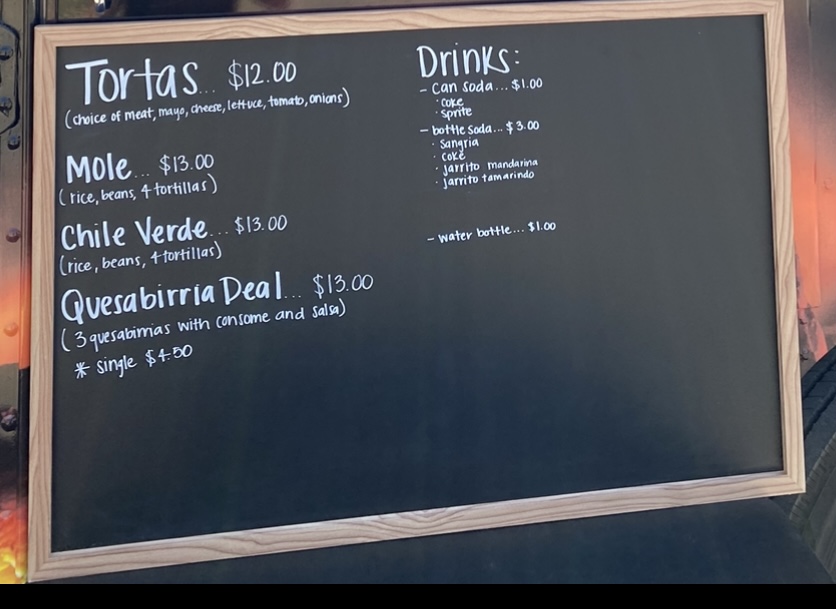 Tortas... $12.00
(choice of meat, mayo, cheese, lettuce, tomato, onions)
Mole... $13.00
(rice, beans, 4 tortillas)
Chile Verde... $13.00
(rice, beans, 4 tortillas)
Quesabirria Deal... $13.00
(3 quesabirrias with consome and salsa)
* single $4.50
Drinks:
- can soda... $1.00
· coke
· sprite
- bottle soda... $3.00
· sangria
· coke
· jarrito mandarina
· jarrito tamarindo
- water bottle... $1.00